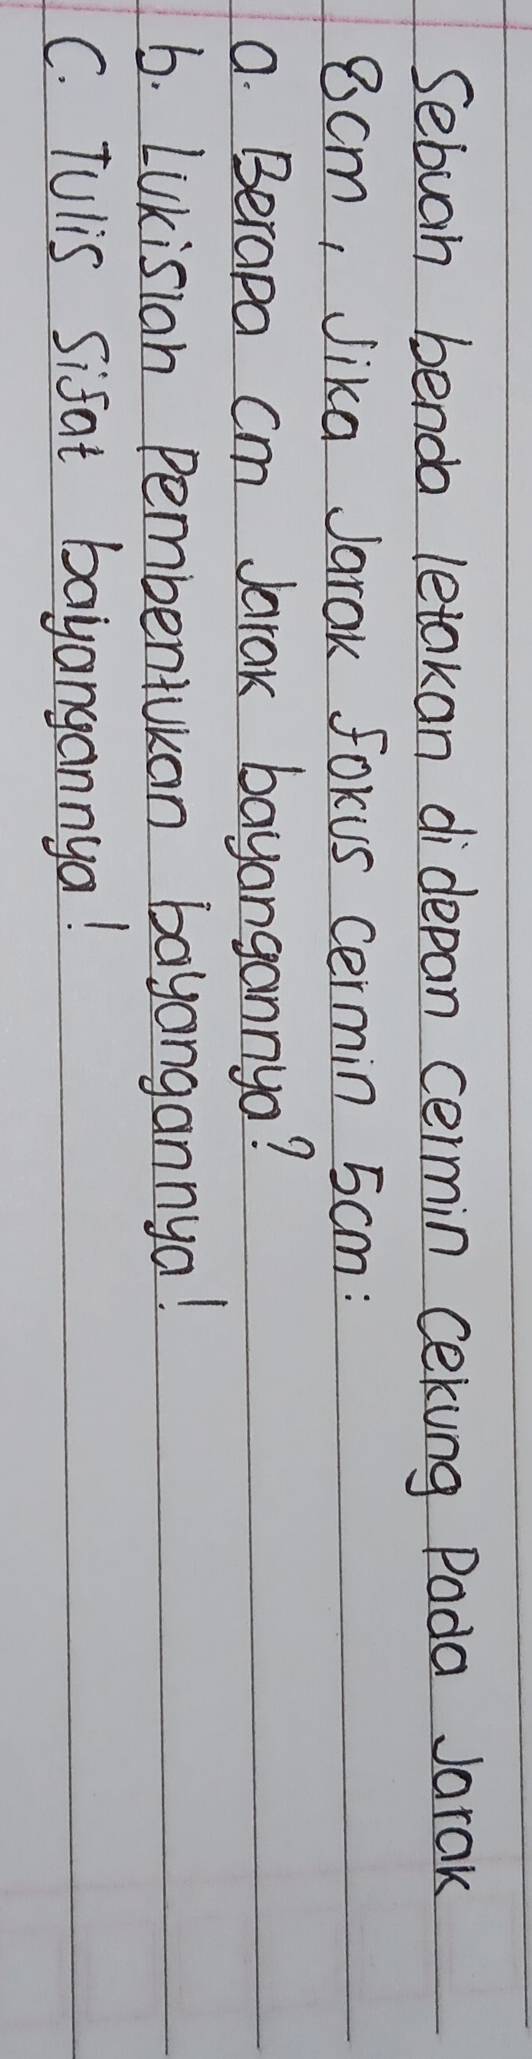 Sebuah benda letakan didepan cermin cekung Pada Jarak
8cm, Jika Jarak fokus cermin 5cm:
a. Berapa cm Jarak bayangannya?
b. Lukislah Pembentukan bayangannya!
C. Tulis Sifat bayangannya!